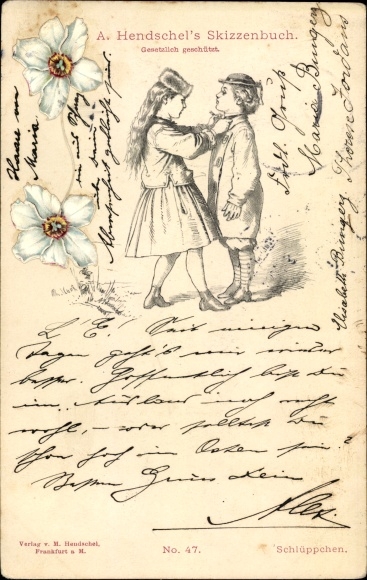 A. Hendschel's Skizzenbuch.
Gesetzlich geschützt.
Haare von
Maria.
Frdl. Gruß
Maria Bungerz
Therese Jordans
Elisabeth Bungerz
L. E! Seit einigen
Tagen geht's mir wieder
besser. Hoffentlich bist du
im Ausland noch recht
wohl, - oder solltest Du
schon hoch im Osten sein?
Besten Gruss Dein
Alex.
Verlag v. M. Hendschel,
Frankfurt a M.
No. 47.
Schlüppchen.